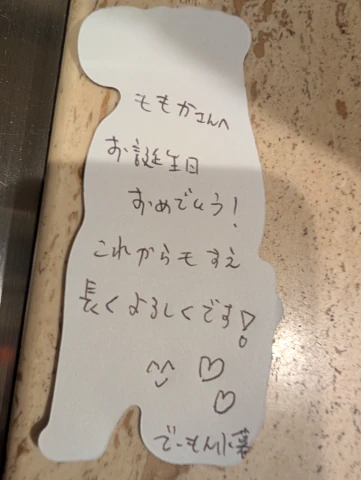 ももかさんへ
お誕生日
おめでとう!
これからもすえ
長くよろしくです!
でーもん小暮